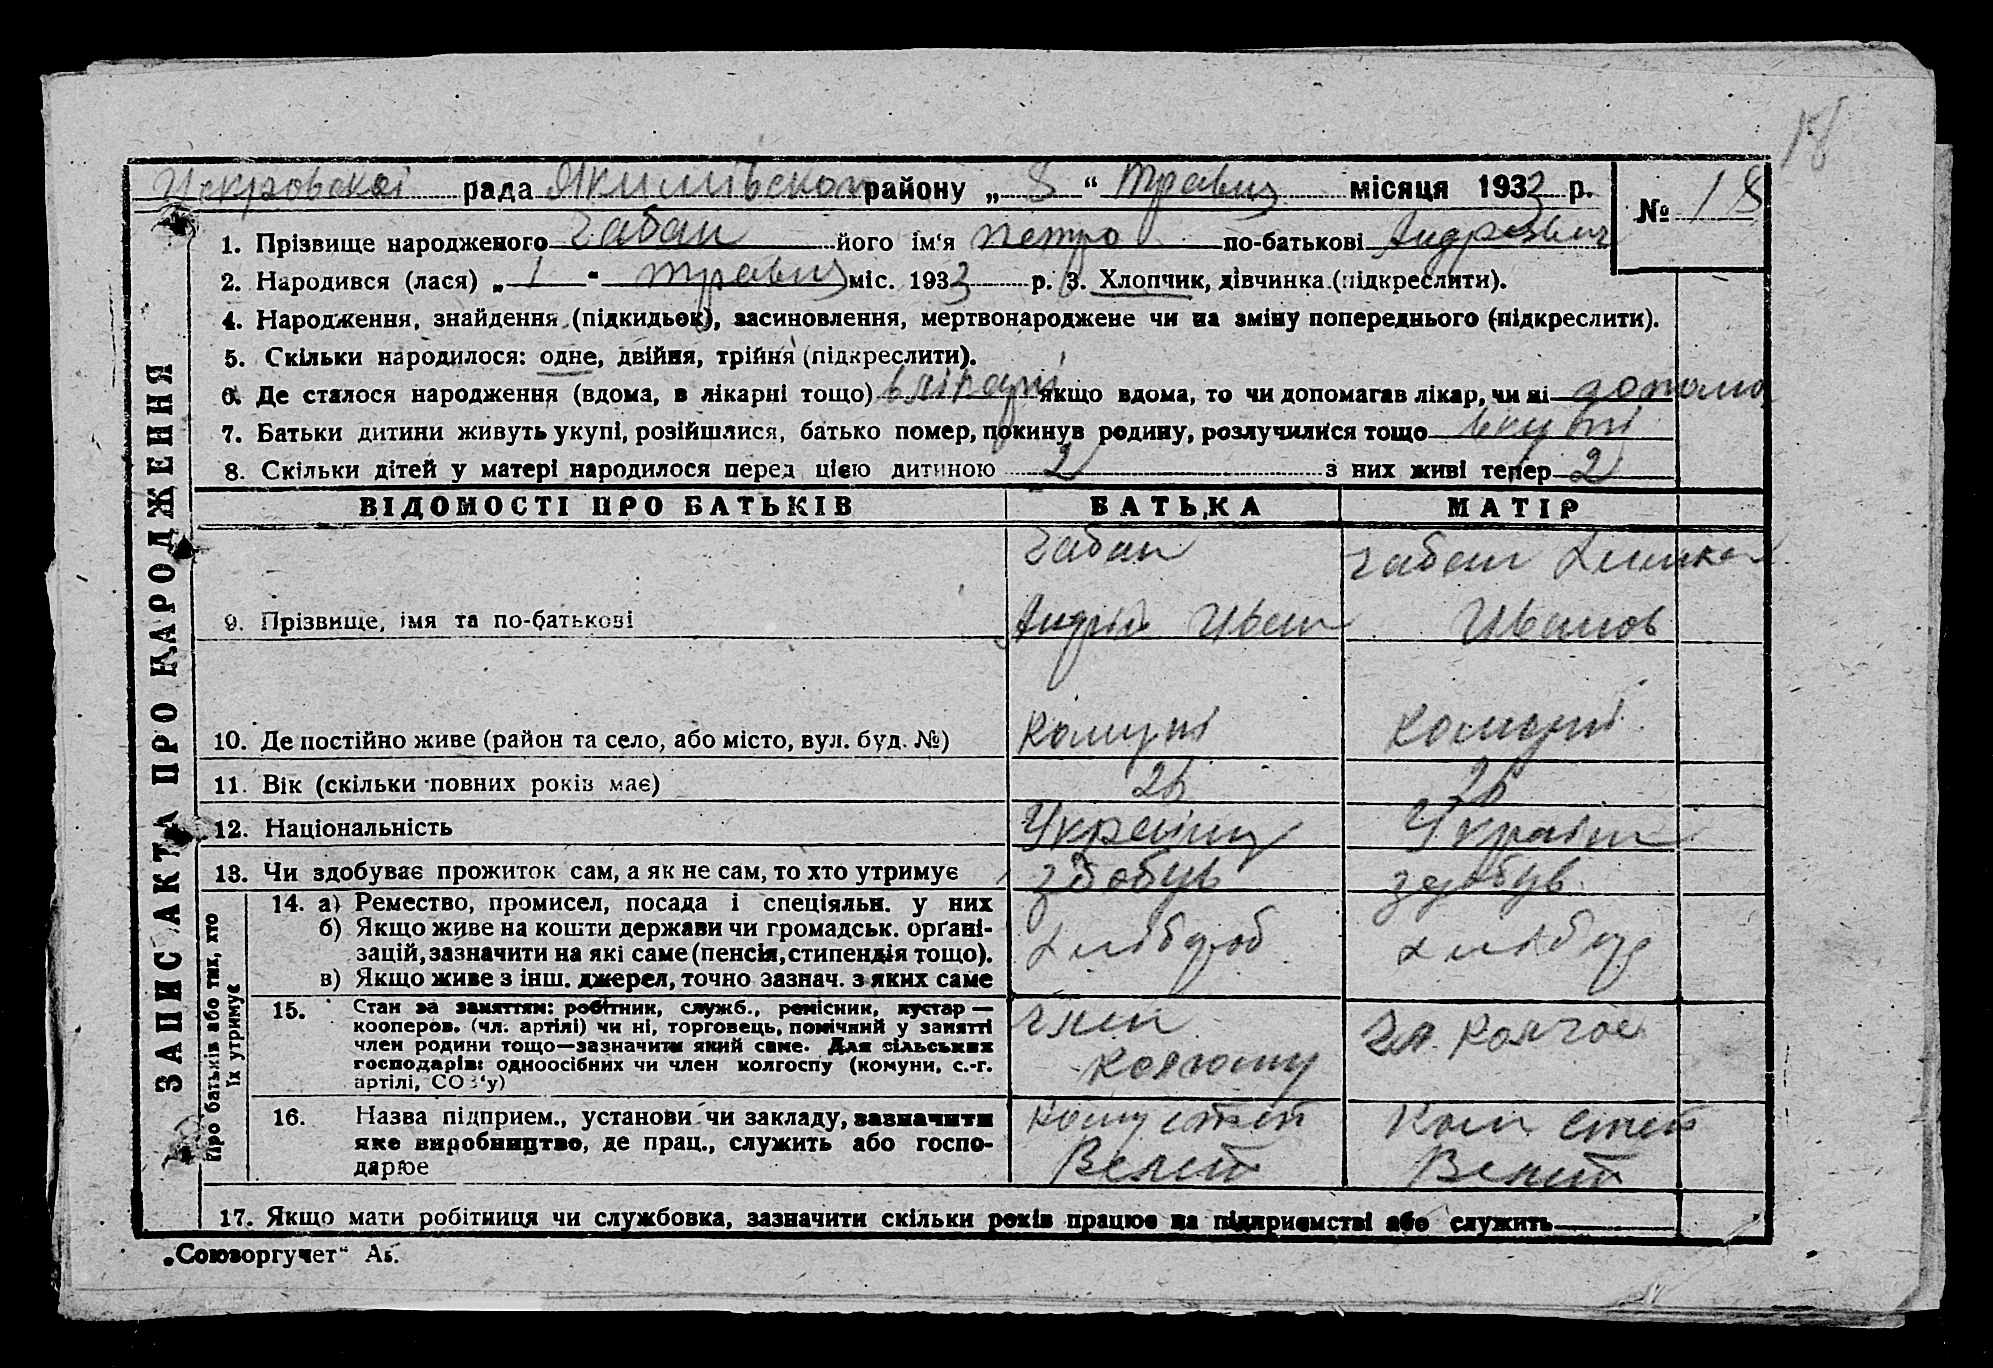 18
Искровской рада Якимівском району „ 8 “ травня місяця 1933 р.
№ 18
1. Прізвище народженого Чабан його ім‘я Петро по-батькові Андрієвич
2. Народився (лася) „ 1 “ травня міс. 1933 р. 3. Хлопчик, дівчинка (підкреслити).
4. Народження, знайдення (підкидьок), засиновлення, мертвонароджене чи на зміну попереднього (підкреслити).
5. Скільки народилося: одне, двійня, трійня (підкреслити).
6. Де сталося народження (вдома, в лікарні тощо) в лікарні якщо вдома, то чи допомагав лікар, чи ні
7. Батьки дитини живуть укупі, розійшлися, батько помер, покинув родину, розлучилися тощо вкупі
8. Скільки дітей у матері народилося перед цією дитиною 2 з них живі тепер 2
ЗАПИС АКТА ПРО НАРОДЖЕННЯ
ВІДОМОСТІ ПРО БАТЬКІВ БАТЬКА МАТІР
Чабан Чабан
9. Прізвище, імя та по-батькові Андрій Иван Иванов
10. Де постійно живе (район та село, або місто, вул. буд. №) Комуні Комуні
11. Вік (скільки повних років має) 26 26
12. Національність Украінц Украін
13. Чи здобуває прожиток сам, а як не сам, то хто утримує здобув здобув
Про батьків або тих, хто їх утримує
14. а) Ремество, промисел, посада і спеціяльн. у них
б) Якщо живе на кошти держави чи громадськ. орґані-
зацій, зазначити на які саме (пенсія, стипендія тощо). Хлібороб
в) Якщо живе з інш. джерел, точно зазнач. з яких саме
15. Стан за заняттям: робітник, служб., ремісник, кустар —
кооперов. (чл. артілі) чи ні, торговець, помічний у занятті
член родини тощо—зазначити який саме. Для сільських
господарів: одноосібних чи член колгоспу (комуни, с.-г.
артілі, СОЗ‘у)
член Чл. колгос
16. Назва підприєм., установи чи закладу, зазначити
яке виробництво, де прац., служить або госпо-
дарює
17. Якщо мати робітниця чи службовка, зазначити скільки років працює на підприємстві або служить
„Союзоргучет“